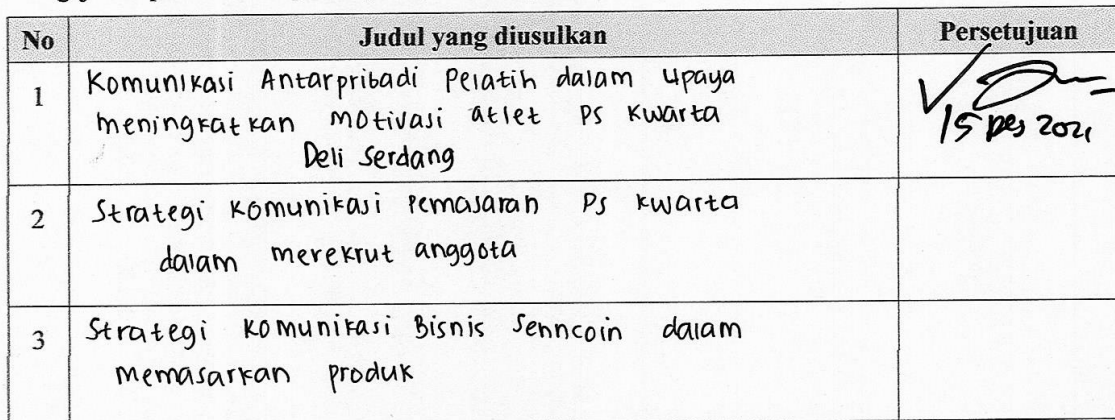 No Judul yang diusulkan Persetujuan
1 Komunikasi Antarpribadi Pelatih dalam upaya
meningkatkan motivasi atlet PS Kwarta
Deli Serdang
15 Des 2021
2 Strategi Komunikasi Pemasaran PS Kwarta
dalam merekrut anggota
3 Strategi Komunikasi Bisnis Senncoin dalam
memasarkan produk